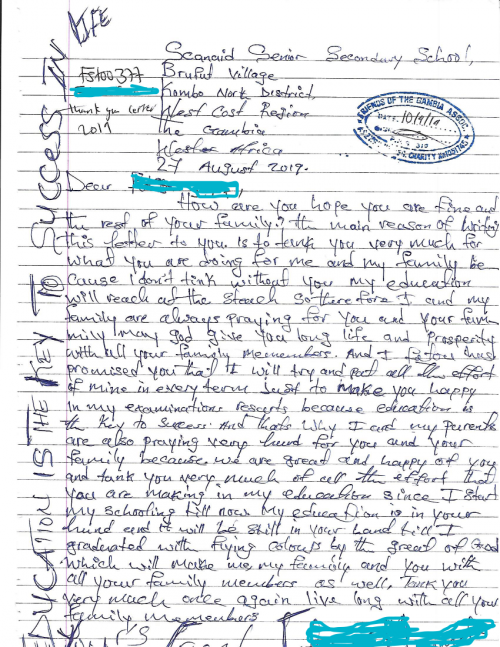 EDUCATION IS THE KEY TO SUCCESS IN LIFE
Scancaid Senior Secondary School,
FS100377
Brufut Village
Kombo Nork District,
thank you letter
2019
West Cost Region
The Gambia
Wester Africa
27 August 2019.
FRIENDS OF THE GAMBIA ASSOC.
DATE: 10/9/19
CHARITY
Dear
How are you hope you are fine and
the rest of your family? the main reason of writing
this letter to you is to tank you very much for
what you are doing for me and my family be
cause I don't tink without you my education
will reach at the steach so therefore I and my
family are always praying for you and your fam
mily may god give you long life and Prosperity
with all your family memembers. And I
promised you that it will try and put all the effort
of mine in every term just to make you happy
in my examinations resarts because education is
the key to success. And thats why I and my parents
are also praying very hand for you and your
family because we are great and happy of you
and tank you very much of all the effort that
you are making in my education since I start
my schooling till now my education is in your
hand and it will be still in your hand till I
graduated with flying colours by the great of God
which will make me my family and you with
all your family members as well, Tank you
very much once again live long with all your
family memembers